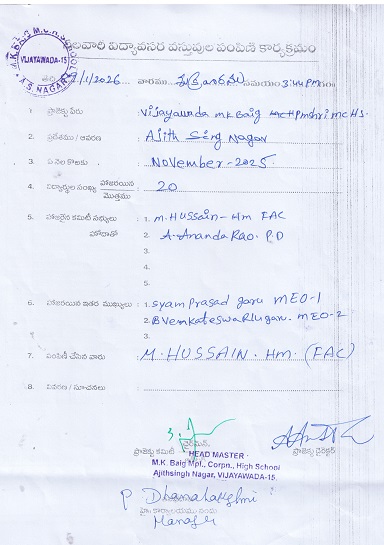 M.K.BAIG M.C.H. SCHOOL
VIJAYAWADA-15
A.S NAGAR
నెలవారీ విద్యావసర వస్తువుల పంపిణీ కార్యక్రమం
తేది 9/1/2026 వారము శుక్రవారము సమయం 3:44 PM గం॥
1. ప్రాజెక్టు పేరు : Vijayawada mk Baig pmshri MCHS.
2. ప్రదేశము / ఆవరణ : Ajith Sing Nagar
3. ఏ నెల కొఱకు : NOVEMBER-2025.
4. విద్యార్థుల సంఖ్య హాజరయిన : 20
మొత్తము
5. హాజరైన కమిటీ సభ్యులు : 1. M. Hussain - Hm FAC
హోదాతో 2. A. Ananda Rao. P.D
3.
4.
5.
6. హాజరయిన ఇతర ముఖ్యులు : 1. Syam Prasad garu MEO-1
2. B Venkateswarlu garu. MEO-2
3.
7. పంపిణీ చేసిన వారు : M. HUSSAIN. Hm. (FAC)
8. వివరణ / సూచనలు :
ప్రాజెక్టు కమిటీ ఛైర్మన్
ప్రాజెక్టు డైరెక్టర్
HEAD MASTER
M.K. Baig Mpl., Corpn., High School
Ajithsingh Nagar, VIJAYAWADA-15.
P Dhanalakshmi
Manager